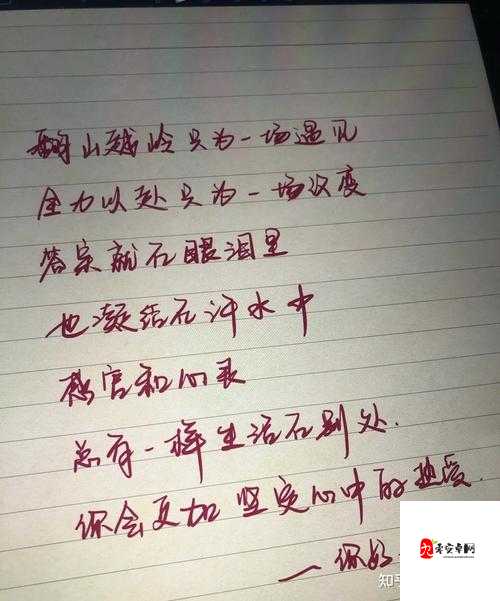 翻山越岭只为一场遇见
全力以赴只为一场没变
答案就在眼泪里
也凝结在汗水中
感官和心灵
总有一样生活在别处.
你会更加坚定心中的热爱.
—你好
知乎
安卓网